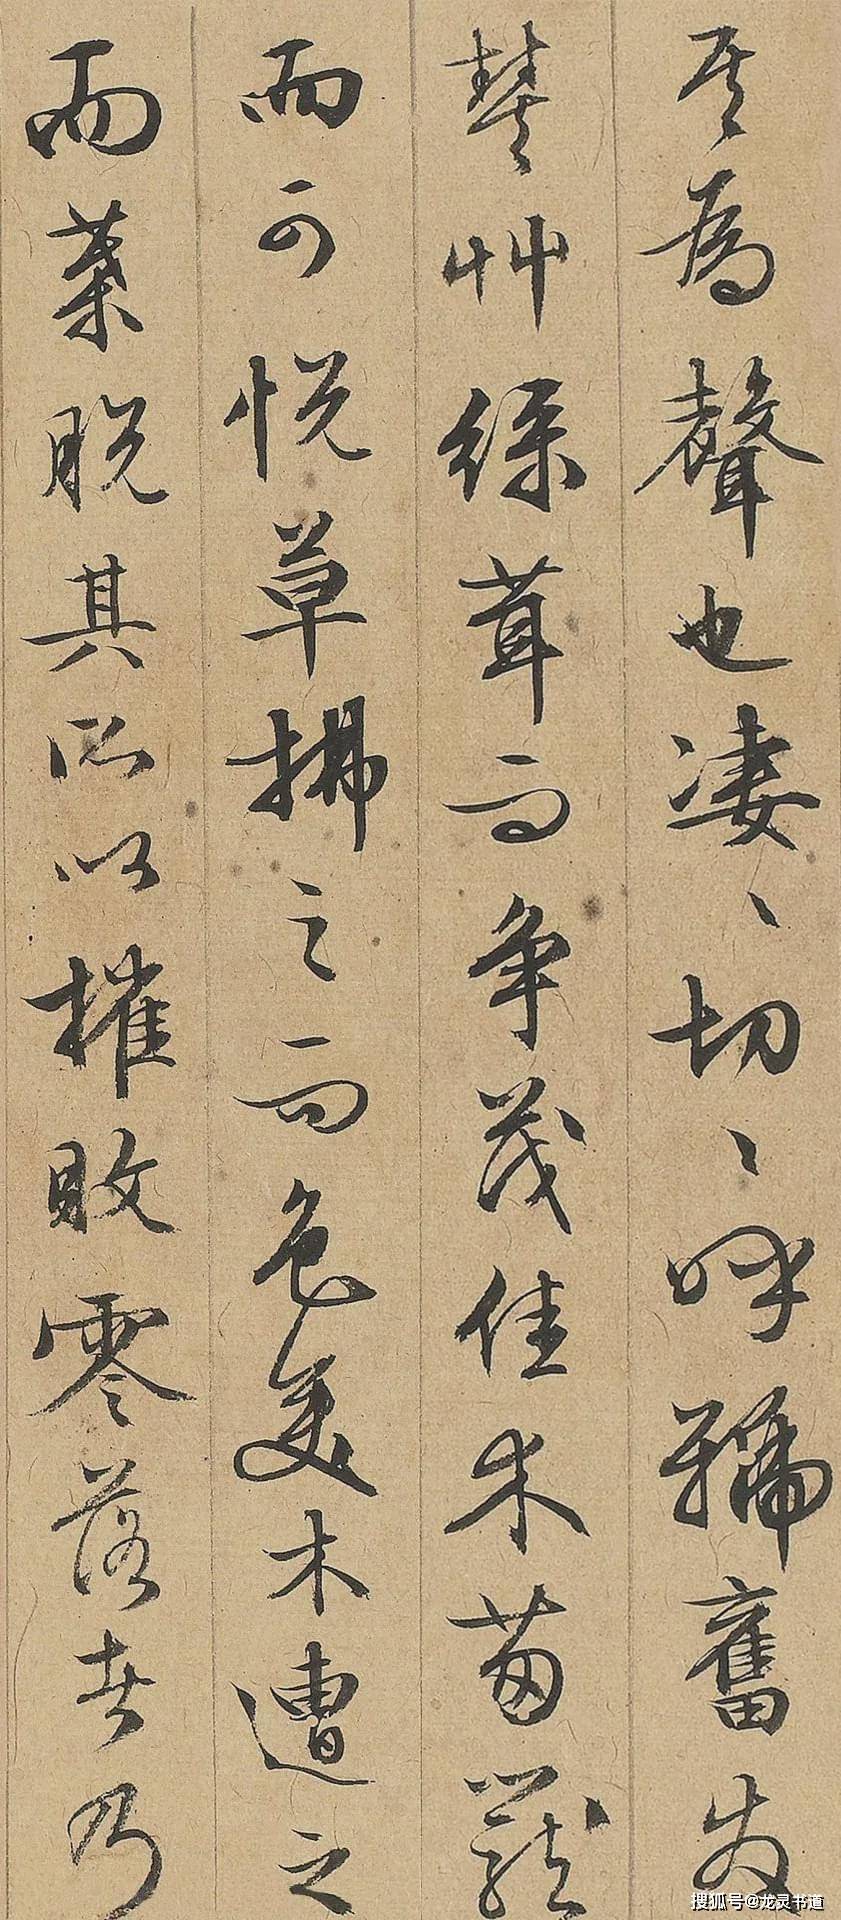 其為聲也淒〻切〻呼號奮發
豐草綠茸而爭茂佳木蔥蘢
而可悅草拂之而色美木遭之
而葉脫其所以摧敗零落者乃
搜狐号@龙灵书道